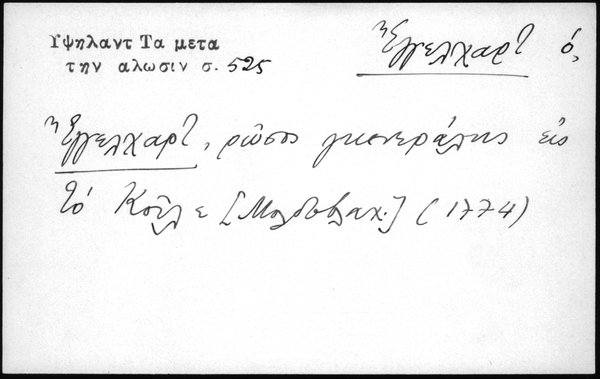 Υψηλαντ Τα μετα
την αλωσιν σ. 525
Ἔγγελχαρτ ὁ,
Ἔγγελχαρτ, ρῶσος γκενεράλης εἰς
τό Κοΐλε [Μολδοβλαχ.] (1774)